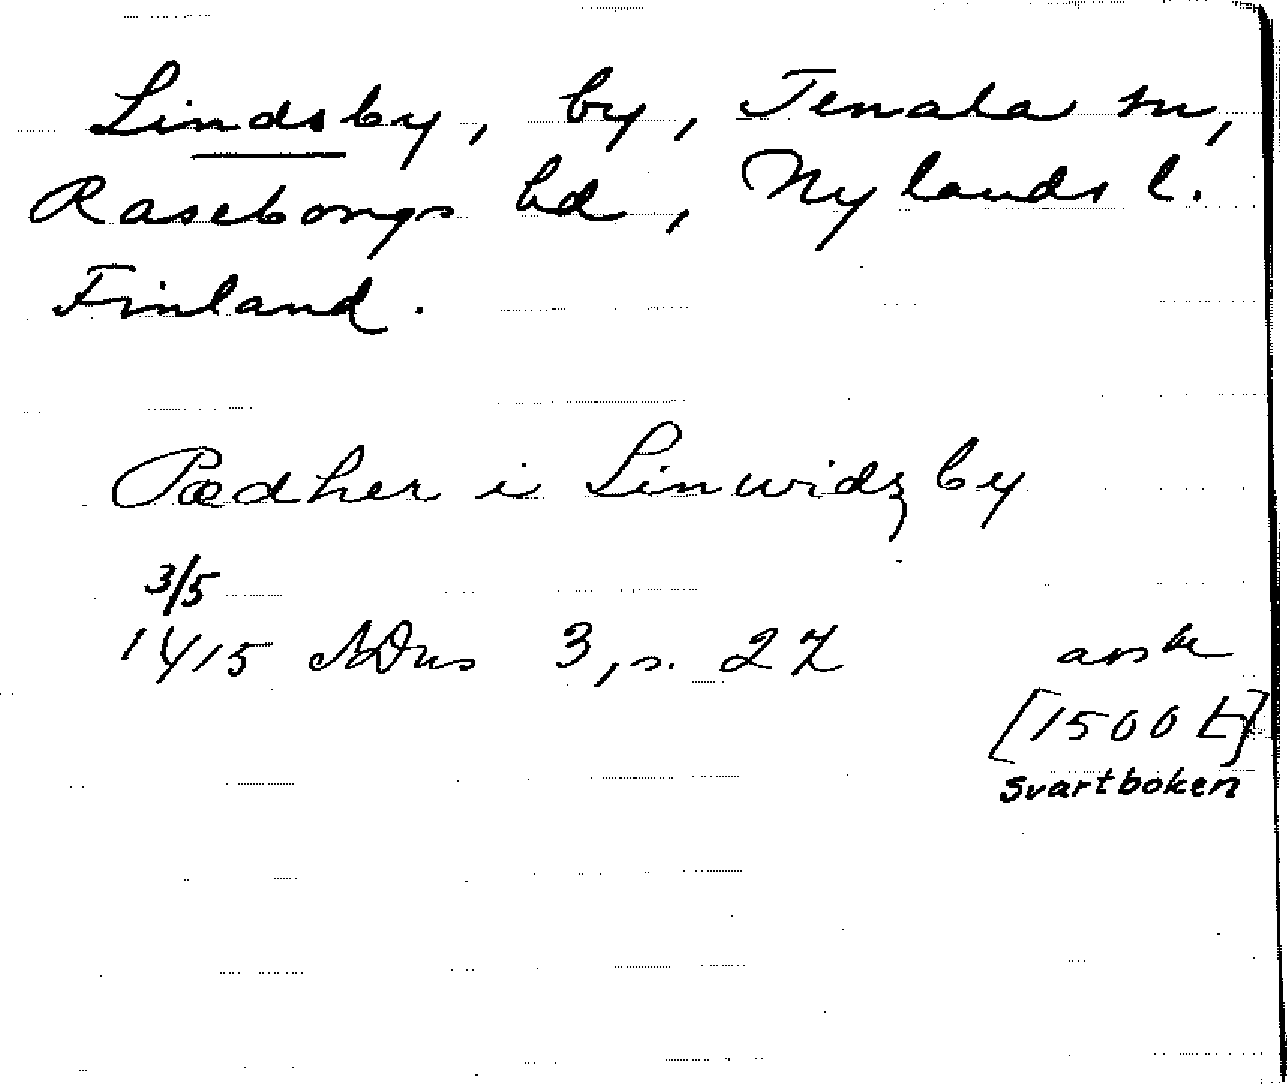 Lindsby, by, Tenala sn,
Raseborgs hd, Nylands l.
Finland.
Pædher i Linwidzby
3/5
1415 SDns 3, s. 27 avskr
[1500 t]
Svartboken